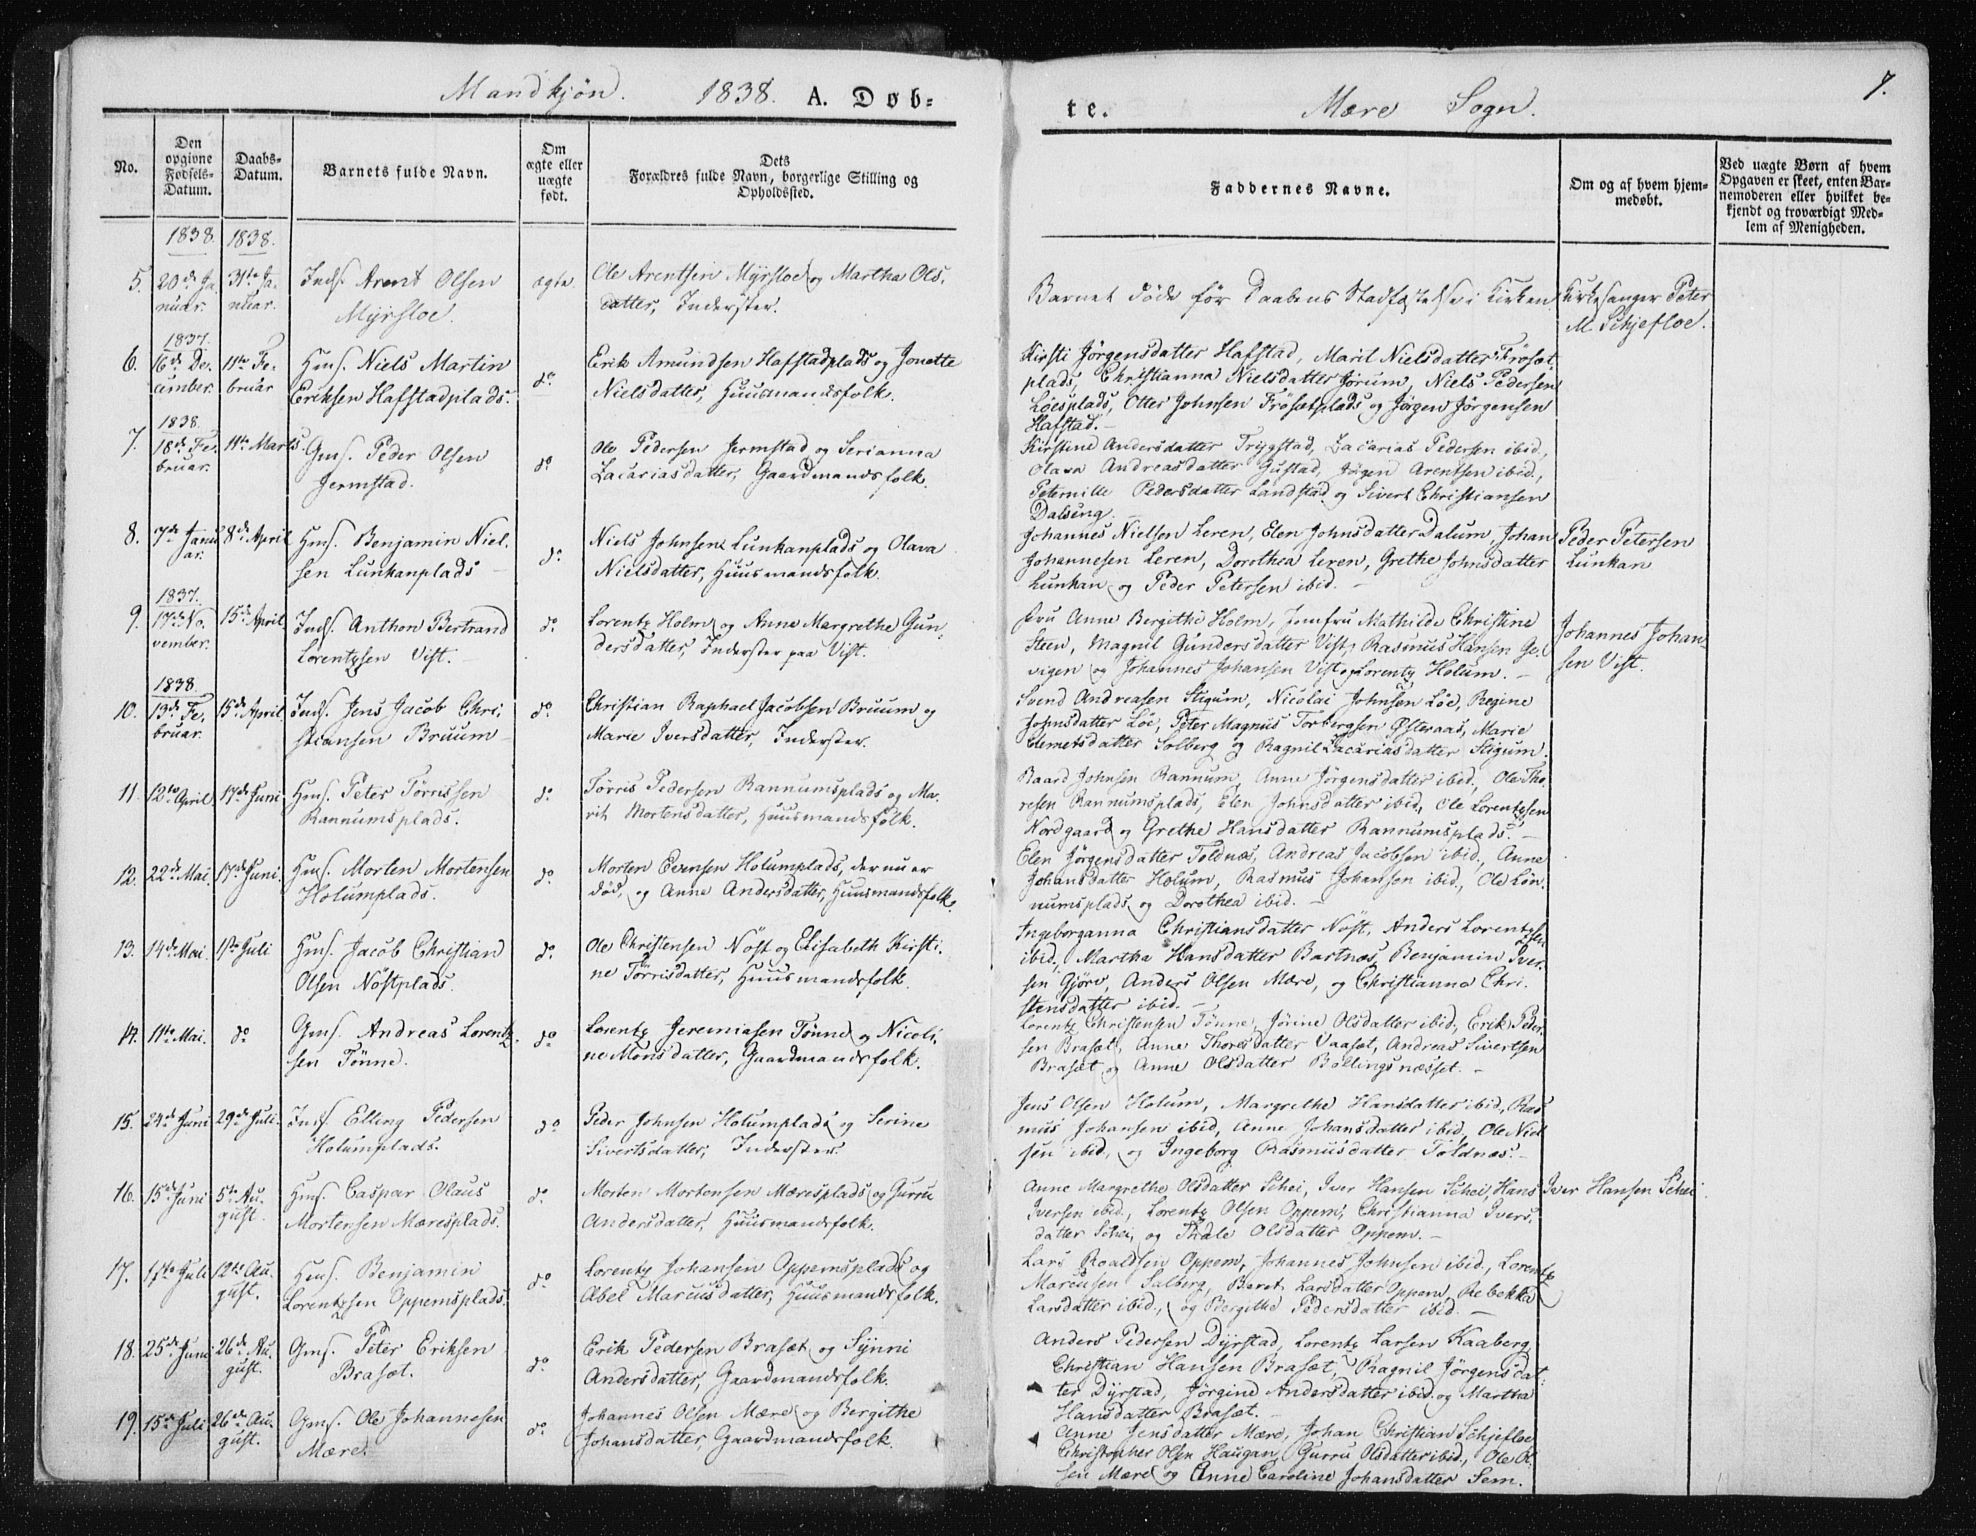 Mandkjøn. 1838. A. Døb-
te. Mære Sogn. 7.
No.
Den opgivne Fødsels-Datum.
Daabs-Datum.
Barnets fulde Navn.
Om ægte eller uægte født.
Dets Forældres fulde Navn, borgerlige Stilling og Opholdssted.
Faddernes Navne.
Om og af hvem hjem-medøbt.
Ved uægte Børn af hvem Opgaven er skeet, enten Bar-nemoderen eller hvilket be-kjendt og troværdigt Med-lem af Menigheden.
1838. 1838.
5. 20de Ja- 31te Ja- Inds. Arent Olsen ægte Ole Arentsen Myrsloe og Martha Ols-
nuar. nuar. Myrsloe. datter, Inderster.
Barnet døde før Daabens Stadfæstelse i Kirken. Kirkesanger Peter
M. Schjefloe.
1837.
6. 16de De- 11te Fe- Hms. Niels Martin do Erik Amundsen Hafstadplads og Jonette
cember. bruar Eriksen Hafstadplads. Nielsdatter, Huusmandsfolk.
Kirsti Jørgensdatter Hafstad, Marit Nielsdatter Frøsæt-
plads, Christianna Nielsdatter Jørum, Niels Pedersen
Löesplads, Otter Johnsen Frösætplads og Jørgen Jørgensen
Hafstad.
1838.
7. 18de Fe- 11te Marts Gms. Peder Olsen do Ole Pedersen Jermstad og Serianna
bruar. Jermstad. Zacariasdatter, Gaardmandsfolk.
Kirstine Andersdatter Trygstad, Zacarias Pedersen ibid.,
Olava Andreasdatter Gustad, Jørgen Arentsen ibid,
Peternille Pedersdatter Landstad og Sivert Christiansen
Dalsing.
8. 7de Janu- 8de April Hms. Benjamin Niel- do Niels Johnsen Lunkanplads og Olava
ar. sen Lunkanplads Nielsdatter, Huusmandsfolk.
Johannes Nielsen Leren, Elen Johnsdatter Dalum, Johan Peder Petersen
Johannesen Leren, Dorothea Leren, Grethe Johnsdatter Lunkan
Lunkan og Peder Petersen ibid.
1837.
9. 17de No- 15de April Inds. Anthon Bertrand do Lorentz Holm og Anne Margrethe Gun-
vember. Lorentzsen Vist. dersdatter, Inderster paa Vist.
Fru Anne Bergithe Holm, Jomfru Mathilde Christine
Steen, Magnil Gundersdatter Vist, Rasmus Hansen Ge- Johannes Johan-
vigen og Johannes Johansen Vist og Lorentz Holum. sen Vist.
1838.
10. 13de Fe- 15de April Inds. Jens Jacob Chri- do Christian Raphael Jacobsen Bruum og
bruar. stiansen Bruum Marie Iversdatter, Inderster.
Svend Andreasen Stigum, Nicolai Johnsen Löe, Regine
Johnsdatter Löe, Peter Magnus Torbergsen Østeraas, Marie
Clemetsdatter Solberg og Ragnil Zacariasdatter Stigum.
11. 12te April 17de Juni Hms. Peter Tørrissen do Tørris Pedersen Rannumsplads og Ma-
Rannumsplads. rit Mortensdatter, Huusmandsfolk.
Baard Johnsen Rannum, Anne Jørgensdatter ibid., Ole Tho-
resen Rannumsplads, Elen Johnsdatter ibid, Ole Lorentzsen
Nordgaard og Grethe Hansdatter Rannumsplads.
12. 22de Mai. 17de Juni. Hms. Morten Mortensen do Morten Evensen Holumplads, der nu er
Holumplads. død, og Anne Andersdatter, Huusmandsfolk.
Elen Jørgensdatter Toldnæs, Andreas Jacobsen ibid., Anne
Johansdatter Holum, Rasmus Johansen ibid., Ole Lön-
numsplads og Dorothea ibid.
13. 14de Mai. 1ste Juli Hms. Jacob Christian do Ole Christensen Nöst og Elisabeth Kirsti-
Olsen Nöstplads. ne Tørrisdatter, Huusmandsfolk.
Ingeborganna Christiansdatter Nöst, Anders Lorentzsen
ibid., Martha Hansdatter Bartnæs, Benjamin Iver-
sen Gjørv, Anders Olsen Mære, og Christianna Chri-
stensdatter ibid.
14. 11te Mai. do Gms. Andreas Lorentz- do Lorentz Jeremiasen Tønne og Nicoli-
sen Tönne. ne Monsdatter, Gaardmandsfolk.
Lorentz Christensen Tønne, Jörine Olsdatter ibid, Erik Peder-
sen Brasæt, Anne Thoresdatter Vaasæt, Andreas Sivertsen
Brasæt og Anne Olsdatter Böllingsnæsset.
15. 24de Juni 29de Juli. Inds. Elling Pedersen do Peder Johnsen Holumplads og Serine
Holumplads. Sivertsdatter, Inderster.
Jens Olsen Holum, Margrethe Hansdatter ibid, Ras-
mus Johansen ibid, Anne Johansdatter ibid, Ole Niel-
sen ibid, og Ingeborg Rasmusdatter Toldnæs.
16. 15de Juni 5te Au- Hms. Caspar Olaus do Morten Mortensen Mæresplads og Gurru
gust. Mortensen Mæresplads. Andersdatter, Huusmandsfolk.
Anne Margrethe Olsdatter Schei, Iver Hansen Schei, Hans Iver Hansen Schei.
Iversen ibid., Lorentz Olsen Oppem, Christianna Ivers-
datter Schei, og Thale Olsdatter Oppem.
17. 1ste Juli 12te Au- Hms. Benjamin do Lorentz Johansen Oppemsplads og
gust. Lorentzsen Oppemsplads. Abel Marcusdatter, Huusmandsfolk.
Lars Roaldsen Oppem, Johannes Johnsen ibid., Lorentz
Marcusen Salberg, Beret Larsdatter Oppem, Rebekka
Larsdatter ibid., og Bergithe Pedersdatter ibid.
18. 25de Juni 26de Au- Gms. Peter Eriksen do Erik Pedersen Brasæt og Synni
gust. Brasæt. Andersdatter, Gaardmandsfolk.
Anders Pedersen Dyrstad, Lorentz Larsen Kaaberg,
Christian Hansen Brasæt, Ragnil Jørgensdat-
ter Dyrstad, Jørgine Andersdatter ibid. og Martha
Hansdatter Brasæt.
19. 15de Juli 26de Au- Gms. Ole Johannesen do Johannes Olsen Mære og Bergithe
gust. Mære. Johansdatter, Gaardmandsfolk.
Anne Jensdatter Mære, Johan Christian Schjefloe
Christopher Olsen Haugan, Gurru Olsdatter ibid., Ole Ol-
sen Mære og Anne Caroline Johansdatter Sem.